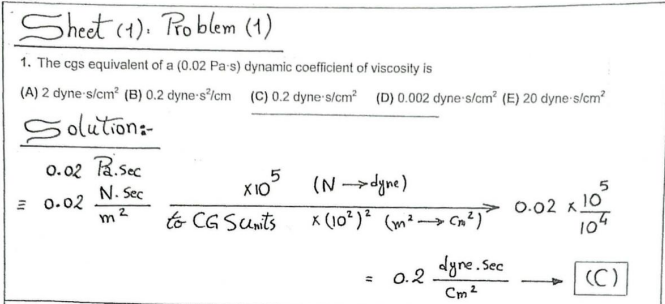 Sheet (1). Problem (1)
1. The cgs equivalent of a (0.02 Pa·s) dynamic coefficient of viscosity is
(A) 2 dyne·s/cm² (B) 0.2 dyne·s²/cm (C) 0.2 dyne·s/cm² (D) 0.002 dyne·s/cm² (E) 20 dyne·s/cm²
Solution:-
0.02 Pa.sec
≡ 0.02 N.Sec/m² ×10⁵ (N → dyne) / to CGS Units ×(10²)² (m² → Cm²) → 0.02 × 10⁵/10⁴
= 0.2 dyne.sec/Cm² → (C)